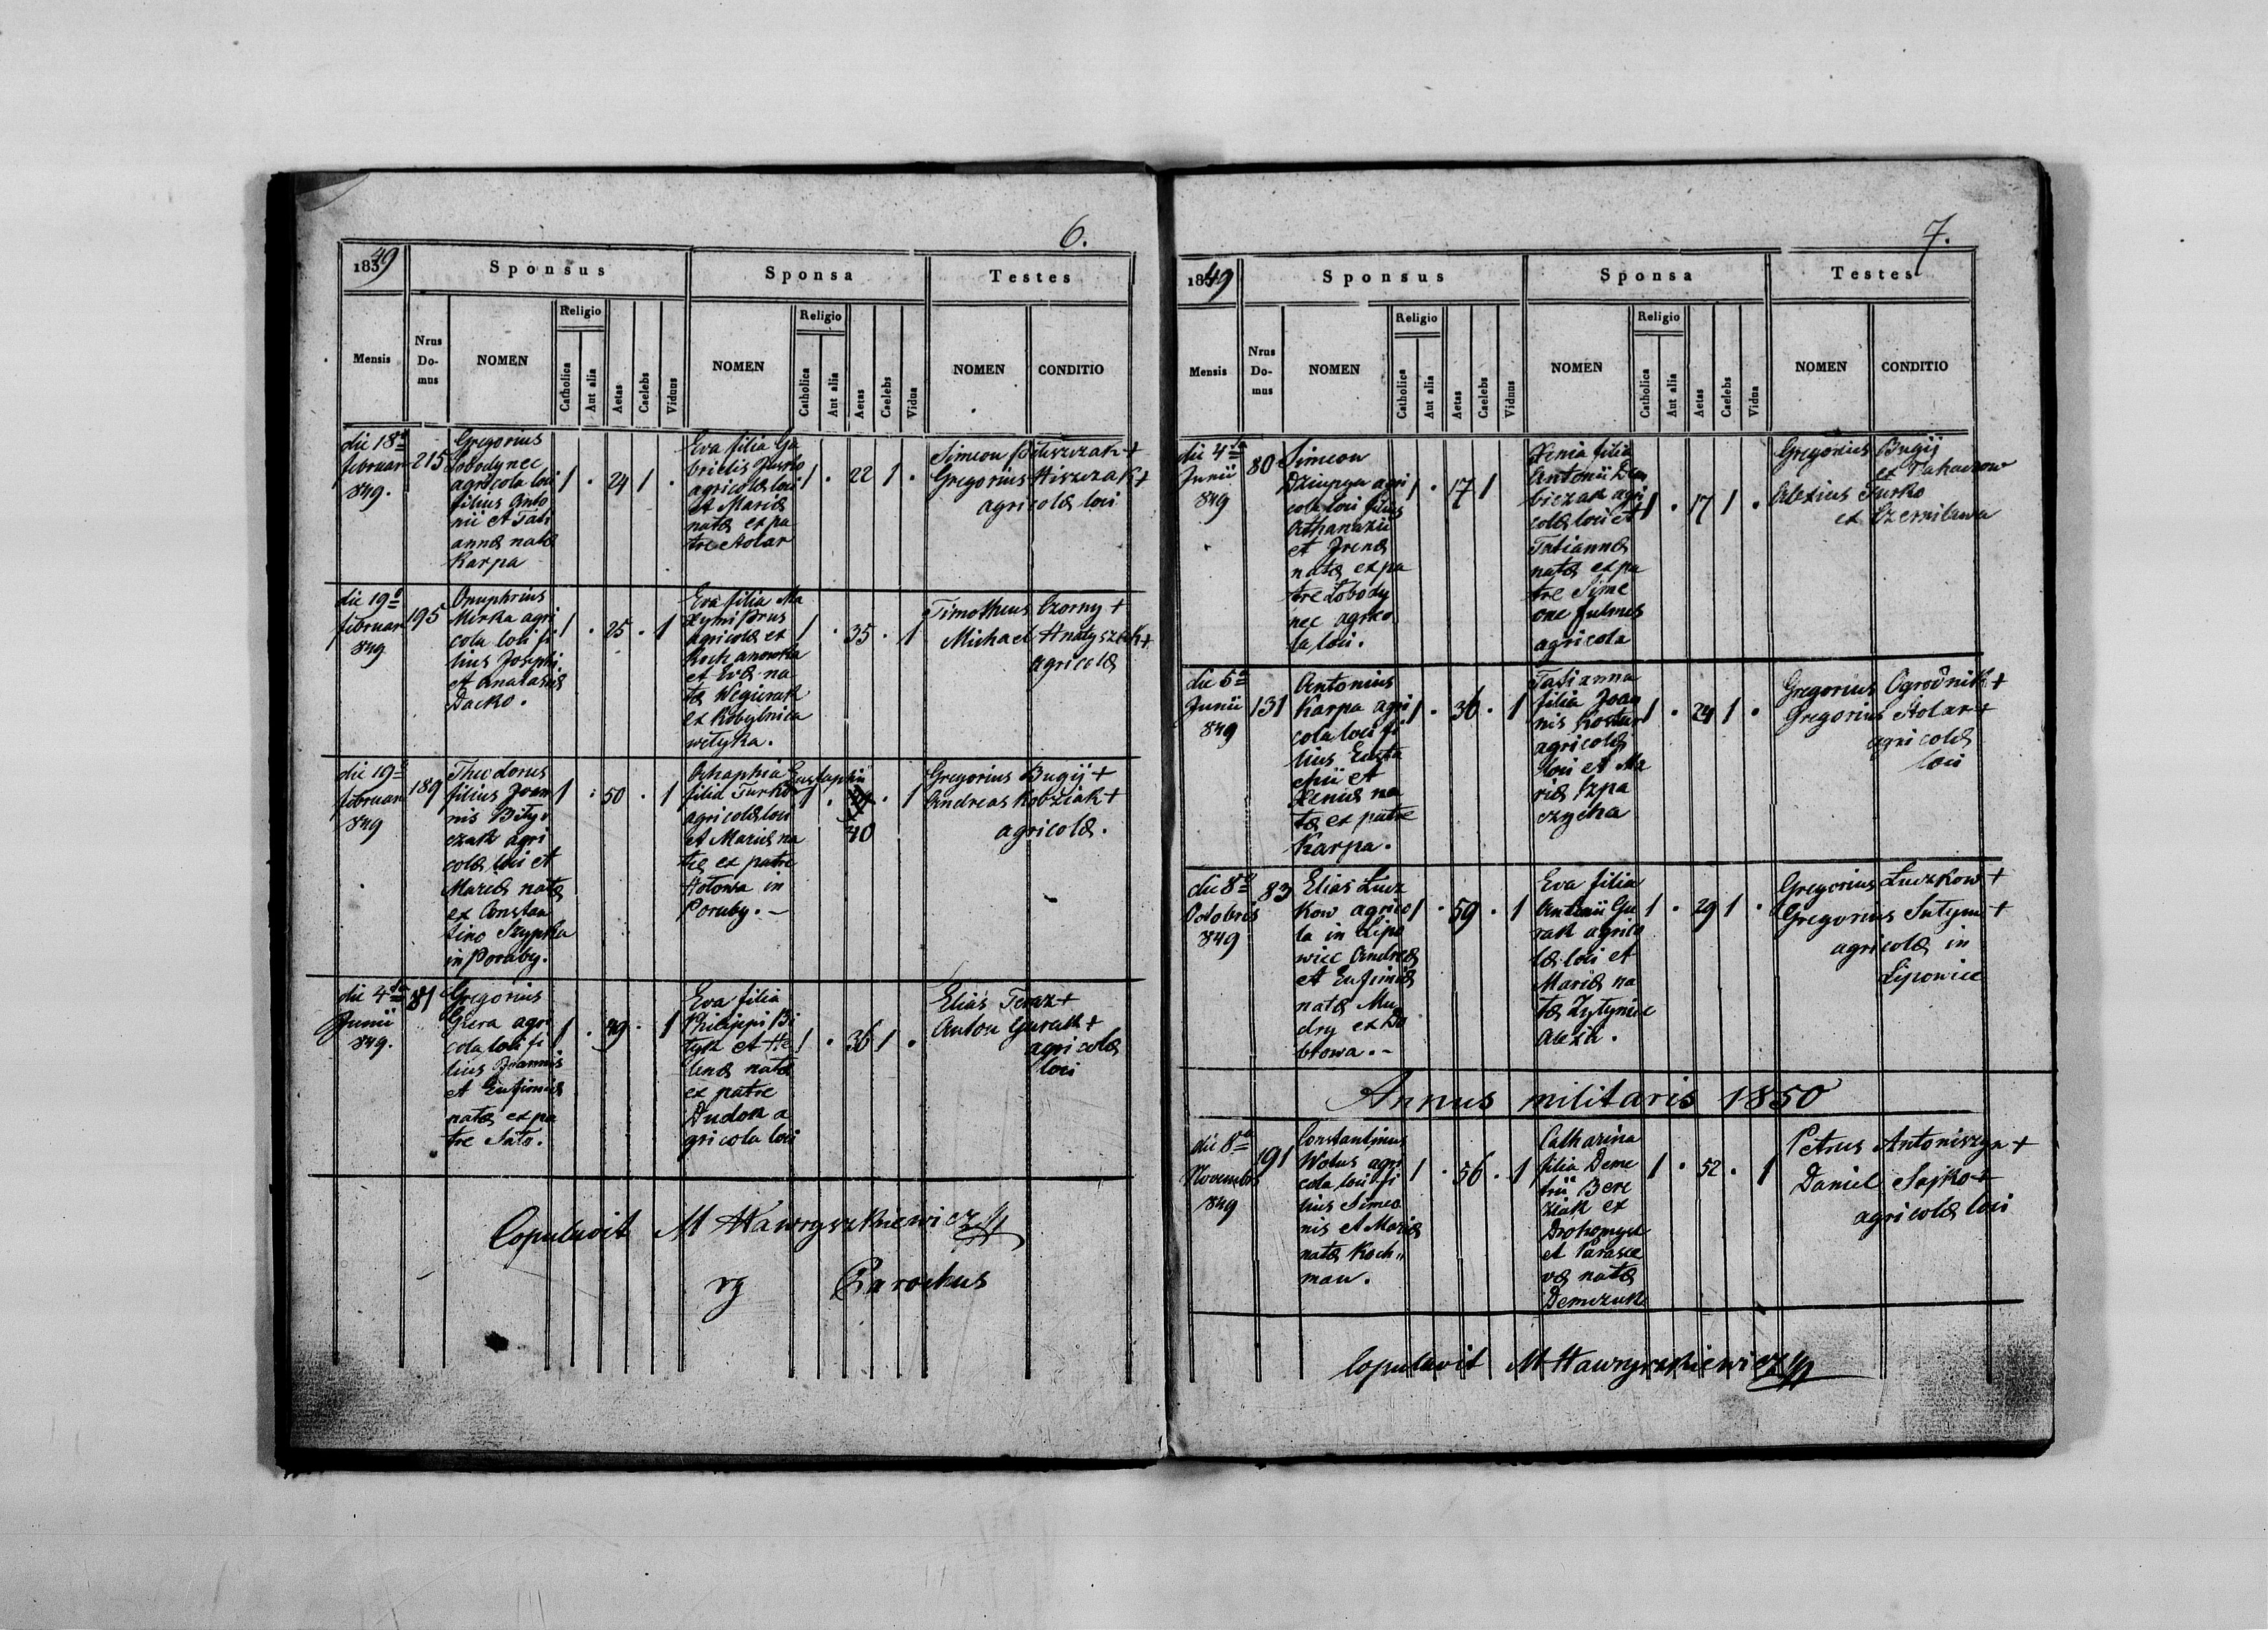 6.
1849
Sponsus
Sponsa
Testes
Mensis
Nrus Do-mus
NOMEN
Religio
Catholica
Aut alia
Aetas
Caelebs
Viduus
NOMEN
Religio
Catholica
Aut alia
Aetas
Caelebs
Vidua
NOMEN
CONDITIO
die 18a
februar
849.
215
Gregorius
Lobodynec
agricola loci
filius Anto
nii et Tati
annæ natæ
Karpa
1 . 24 1 .
Eva filia Ga
brielis Jusko
agricolæ loci
et Mariæ
natæ ex pa
tre Stolar
1 . 22 1 .
Simeon
Gregorius Hiszczak +
agricolæ loci
die 19a
februar
849
195
Onuphrius
Mirka agri
cola loci fi
lius Josephi
et Anatasiæ
Dacko.
1 . 25 . 1
Eva filia Ma
xymi Prus
agricolæ ex
Kochanowka
et Evæ na
tæ Wegierak
ex Kobylnica
wełyka.
1 . 35 . 1
Timotheus Czorny +
Michael Hnatyszak +
agricolæ
die 19a
februar
849
189
Theodorus
filius Joan
nis Bity
czak agri
colæ loci et
Mariæ natæ
ex Constan
tino Szypka
in Poruby.
1 . 50 . 1
Ahaphia Eustaphii
filia Turko
agricolæ loci
et Mariæ na
tæ ex patre
Hołowa in
Poruby. –
1 . 40 . 1
Gregorius Bugij +
Andreas Kobziak +
agricolæ.
die 4ta
Junii
849.
81
Gregorius
Giera agri
cola loci fi
lius Joannis
et Eufimiæ
natæ ex pa
tre Sats.
1 . 49 . 1
Eva filia
Philippi Bi
tyk et He
lenæ natæ
ex patre
Dudok a
gricola loci
1 . 36 1 .
Elias Teraz +
Anton Gurak +
agricolæ
loci
Copulavit M Hawryszkiewicz
rg Parochus
7.
1849
Sponsus
Sponsa
Testes
Mensis
Nrus Do-mus
NOMEN
Religio
Catholica
Aut alia
Aetas
Caelebs
Viduus
NOMEN
Religio
Catholica
Aut alia
Aetas
Caelebs
Vidua
NOMEN
CONDITIO
die 4ta
Junii
849
80
Simeon
Dziupyn agri
cola loci filius
Athanazii
et Irenæ
natæ ex pa
tre Lobody
nec agrico
la loci.
1 . 17 1
Xenia filia
Antonii Dem
biczak agri
colæ loci et
Tatiannæ
natæ ex pa
tre Sime
one Julmes
agricola
1 . 17 1 .
Gregorius Bugij
ex
Alexius Turko
ex Czernilawa
die 5a
Junii
849
131
Antonius
Karpa agri
cola loci fi
lius Eusta
chii et
Xeniæ na
tæ ex patre
Karpa.
1 . 36 . 1
Tatianna
filia Joan
nis Kostur
agricolæ
loci et Ma
riæ Szpa
czycha
1 . 24 1 .
Gregorius Ogrodnik +
Gregorius Stolar +
agricolæ
loci
die 8a
Octobris
849
83
Elias Łucz
kow agrico
la in Lipo
wiec Andreæ
et Eufimiæ
natæ Mu
dry ex Do
browa. –
1 . 59 . 1
Eva filia
Antonii Gu
rak agrico
læ loci et
Mariæ na
tæ Żytynie
Alexii.
1 . 29 1 .
Gregorius Łuczkow +
Gregorius Sutym +
agricolæ in
Lipowiec
Annus militaris 1850
die 8a
Novembris
849
191
Constantinus
Wolus agri
cola loci fi
lius Simeo
nis et Mariæ
natæ Koch„
man.
1 . 56 . 1
Catharina
filia Deme
trii Bere
ziak ex
Drohomysl
et Parasce
væ natæ
Demczuk
1 . 52 . 1
Petrus Antoniszyn +
Daniel Sojko +
agricolæ loci
Copulavit M Hawryszkiewicz